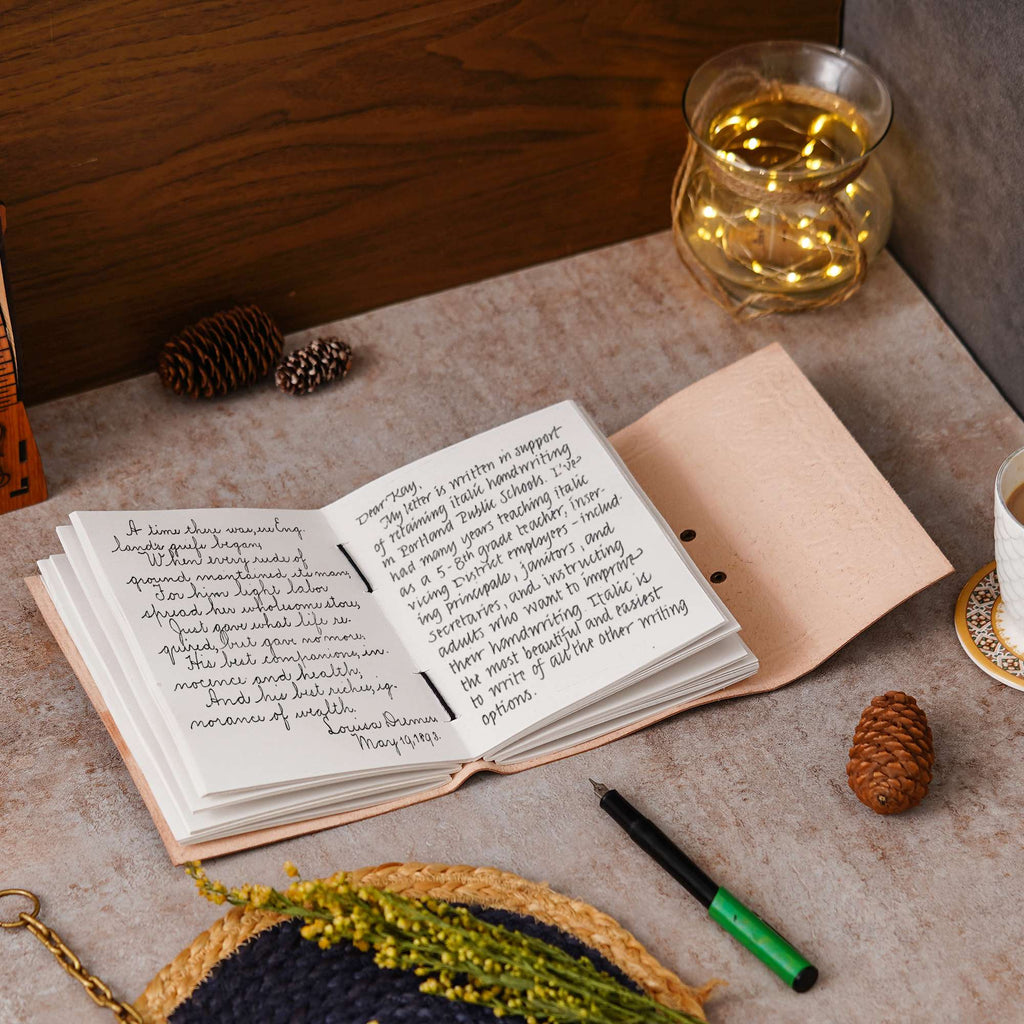 A time there was, ere Eng-
land's griefs began,
When every rood of
ground maintained its man;
For him light labor
spread her wholesome store,
Just gave what life re-
quired, but gave no more;
His best companions, in-
nocence and health;
And his best riches, ig-
norance of wealth.
Louisa Dumus
May 19, 1893.
Dear Kay,
My letter is written in support
of retaining italic handwriting
in Portland Public Schools. I've
had many years teaching italic
as a 5-8th grade teacher, inser-
vicing District employers – includ-
ing principals, janitors, and
secretaries, and instructing
adults who want to improve
their handwriting. Italic is
the most beautiful and easiest
to write of all the other writing
options.